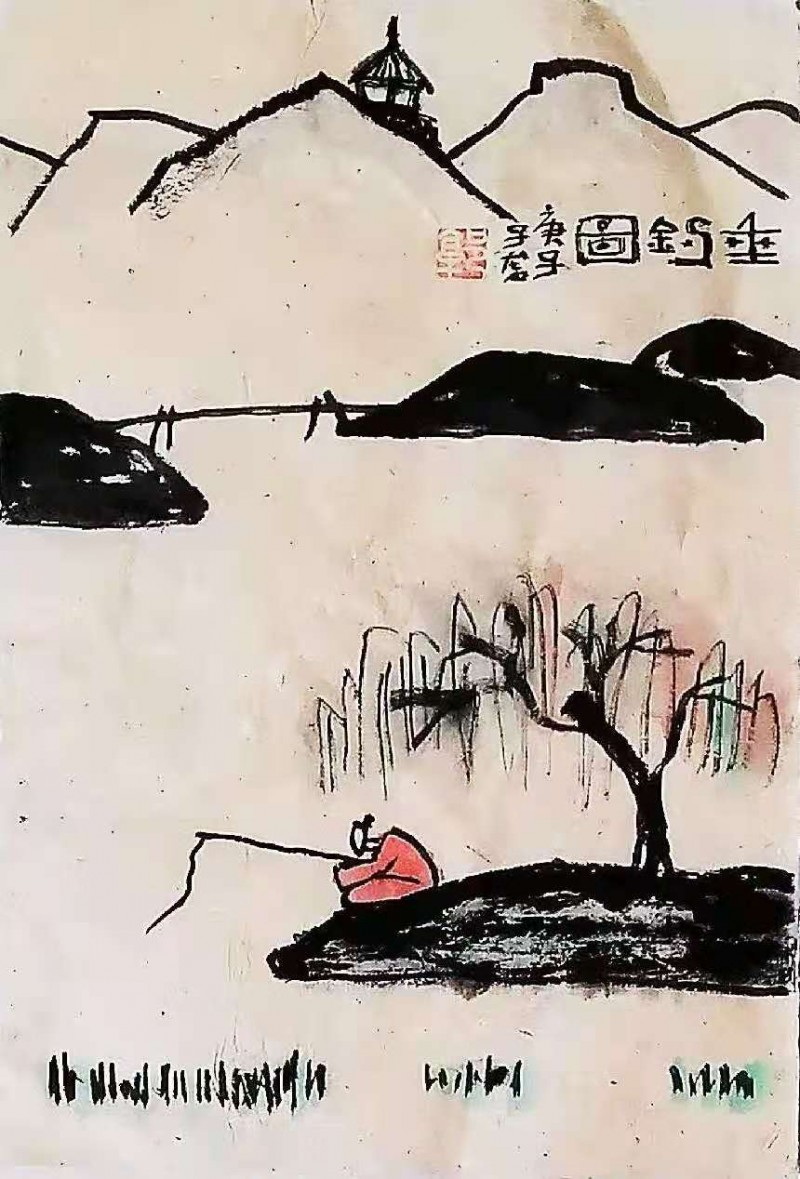 垂釣圖
庚子
子